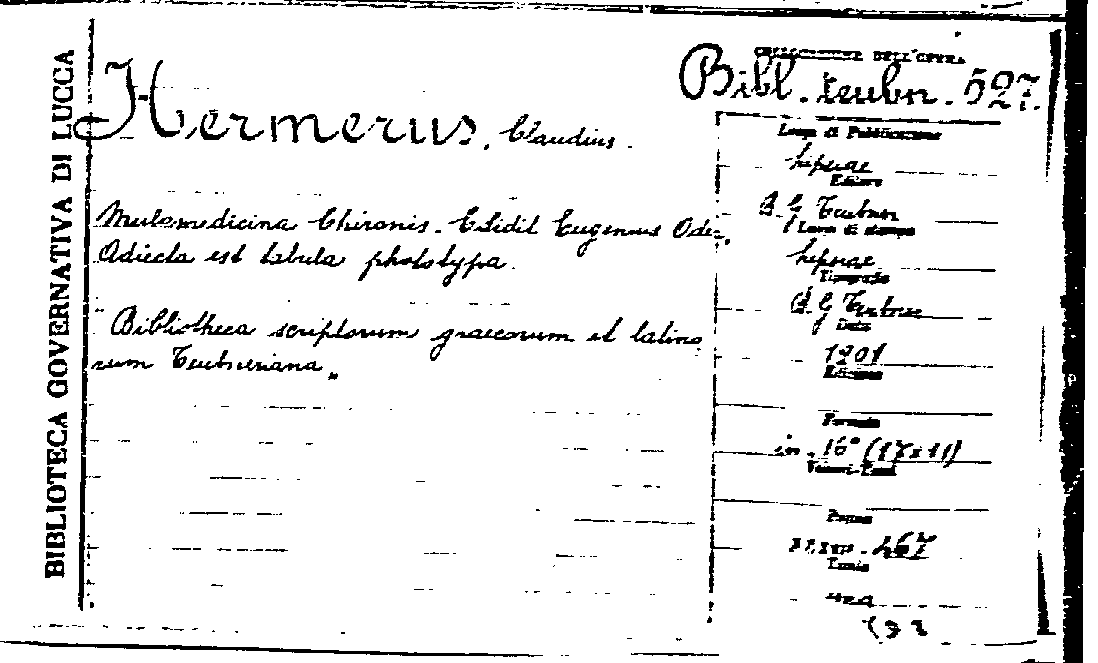 BIBLIOTECA GOVERNATIVA DI LUCCA
COLLOCAZIONE DELL'OPERA
Bibl. teubn. 527.
Hermerus, Claudius.
Mulomedicina Chironis. Edidit Eugenius Oder.
Adiecta est tabula phototypa.
Bibliotheca scriptorum graecorum et latino
rum Teubneriana„
Luogo di Pubblicazione
Lipsiae
Editore
B. G. Teubner
Luogo di stampa
Lipsiae
Tipografo
B. G. Teubner
Data
1901
Edizione
Formato
in. 16° (17x11)
Pagine
467